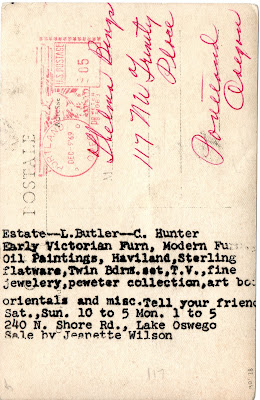 Thelma Binge
117 NW Trinity
Place
Portland
Oregon
POSTALE
U.S. POSTAGE
05
DEC-9'69
Estate--L.Butler--C. Hunter
Early Victorian Furn, Modern Furn
Oil Paintings, Haviland,Sterling
flatware,Twin Bdrm.set,T.V.,fine
jewelery,peweter collection,art bo
orientals and misc.Tell your frien
Sat.,Sun. 10 to 5 Mon. 1 to 5
240 N. Shore Rd., Lake Oswego
Sale by Jeanette Wilson
117